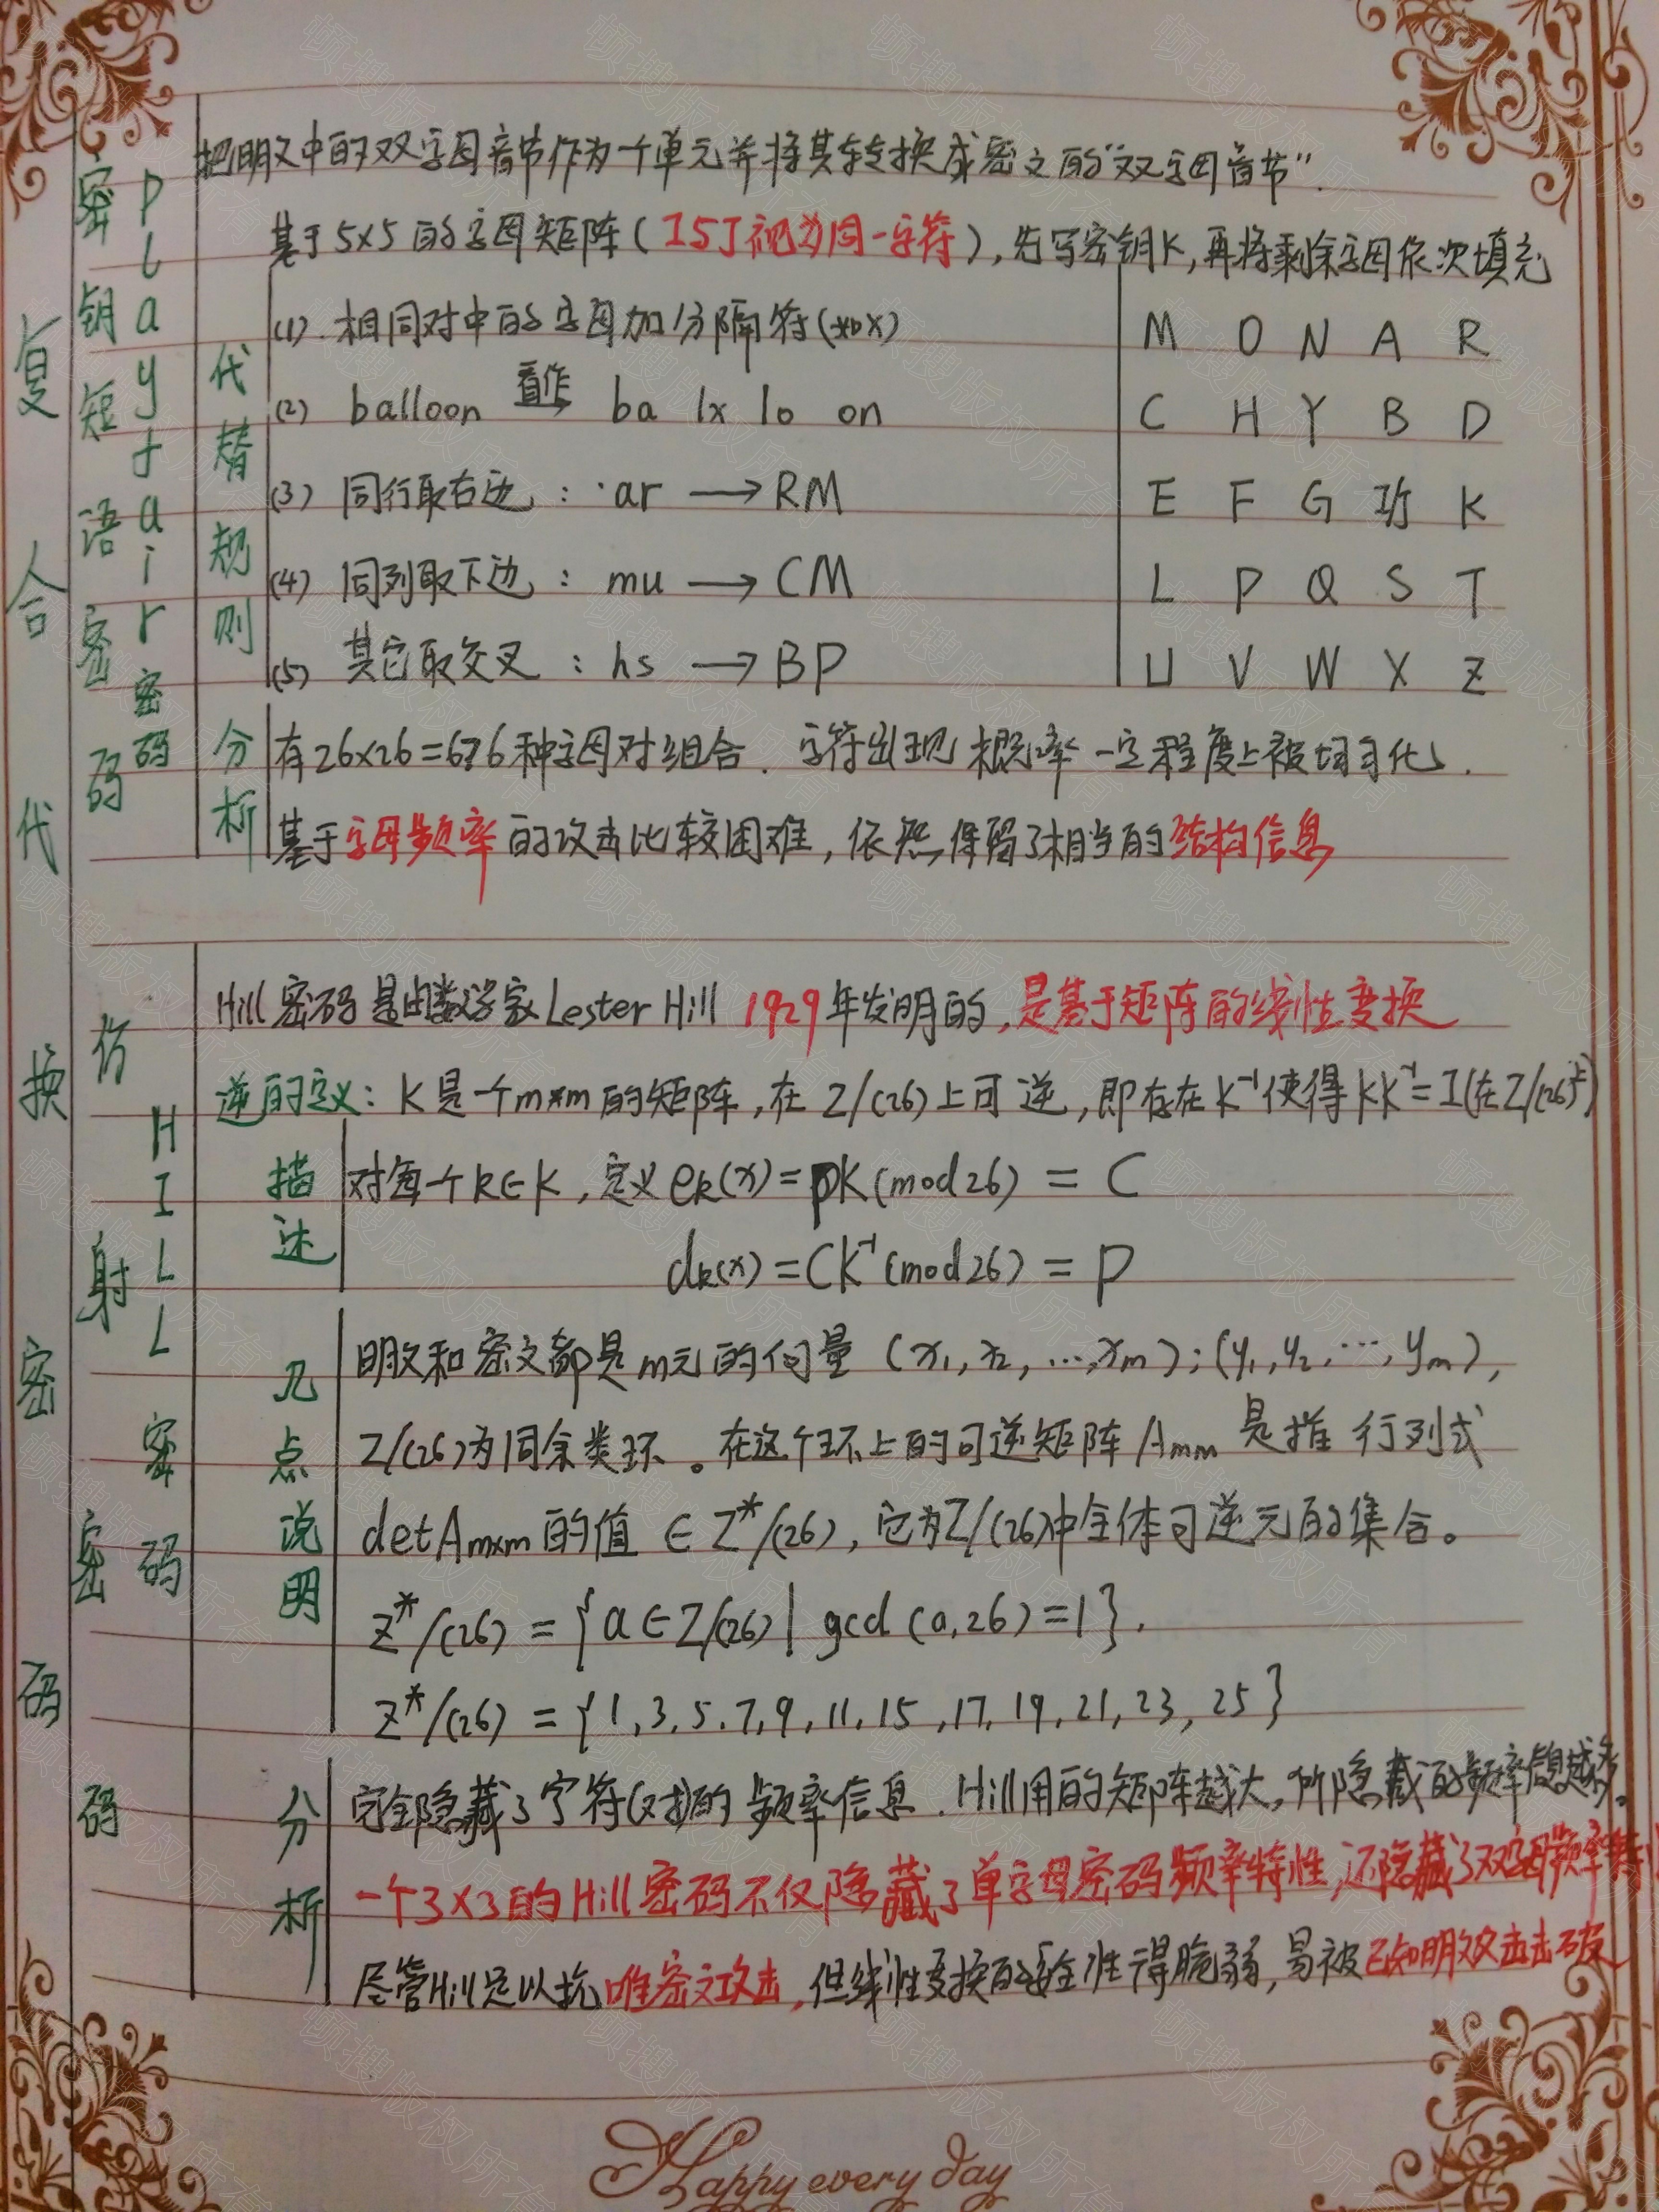 复合代换密码
密钥短语密码
Playfair密码
把明文中的双字母音节作为一个单元并将其转换成密文的“双字母音节”.
基于5x5的字母矩阵(I与J视为同一字符),先写密钥K,再将剩余字母依次填充
代替规则
(1). 相同对中的字母加分隔符(如x)
(2) balloon 看作→ ba lx lo on
(3) 同行取右边: ar → RM
(4) 同列取下边: mu → CM
(5) 其它取交叉: hs → BP
M O N A R
C H Y B D
E F G I/J K
L P Q S T
U V W X Z
分析
有26x26=676种字母对组合. 字符出现概率一定程度上被均匀化.
基于字母频率的攻击比较困难,依然保留了相当的结构信息
仿射密码
HILL密码
Hill密码是由数学家Lester Hill 1929年发明的,是基于矩阵的线性变换
逆的定义: K是一个m×m的矩阵,在Z/(26)上可逆,即存在K⁻¹使得KK⁻¹=I(在Z/(26)上)
描述
对每一个k∈K,定义eₖ(x)=pK(mod26) = C
dₖ(x)=CK⁻¹(mod26) = P
几点说明
明文和密文都是m元的向量 (x₁,x₂,…,xₘ);(y₁,y₂,…,yₘ),
Z/(26)为同余类环。在这个环上的可逆矩阵Aₘₘ 是指 行列式
detAₘₓₘ的值 ∈ Z*/(26),它为Z/(26)中全体可逆元的集合。
Z*/(26) = {a∈Z/(26)| gcd(a,26)=1}.
Z*/(26) = {1,3,5,7,9,11,15,17,19,21,23,25}
分析
完全隐藏了字符(对)的频率信息.Hill用的矩阵越大,所隐藏的频率信息越多。
一个3×3的Hill密码不仅隐藏了单字母密码频率特性,还隐藏了双字母频率特
尽管Hill足以抗唯密文攻击,但线性变换的安全性得脆弱,易被已知明文攻击击破
Happy every day
顿搜版权所有